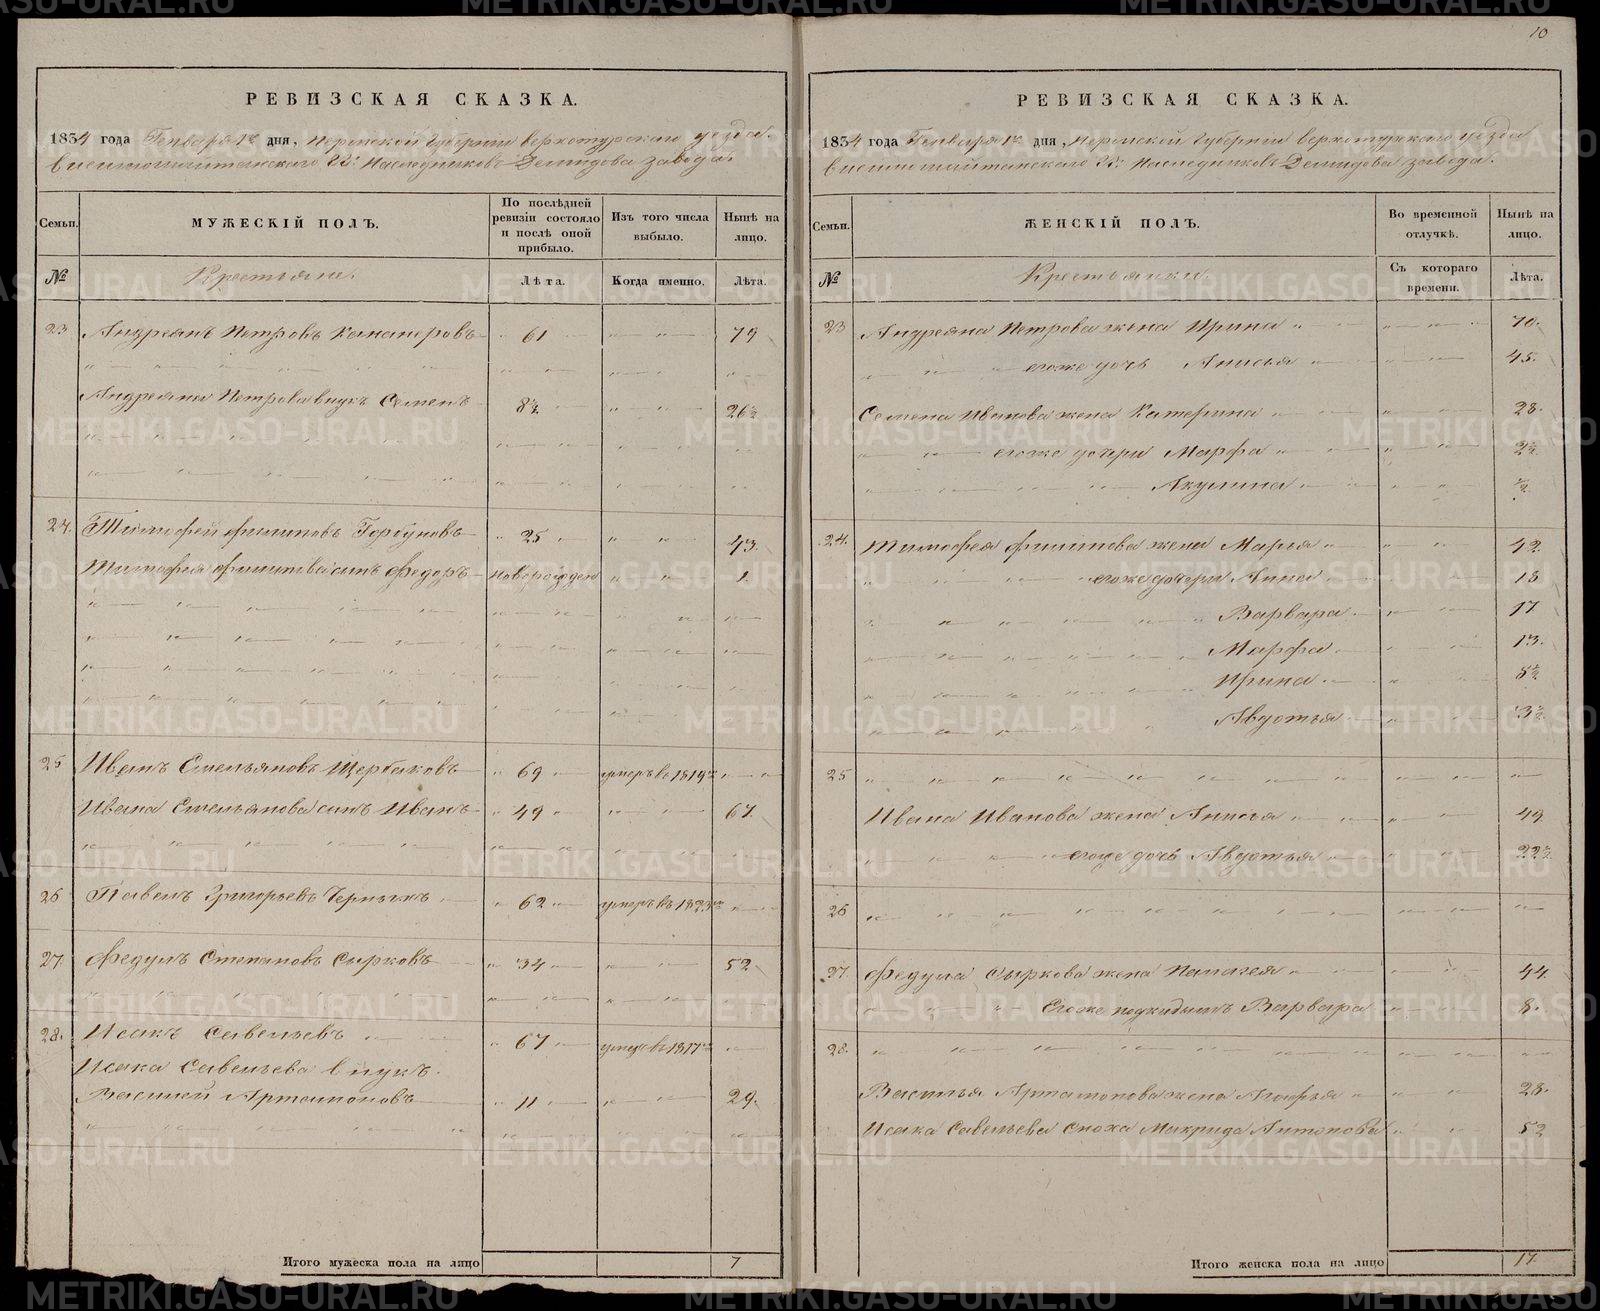 10
РЕВИЗСКАЯ СКАЗКА.
1834 года Генваря 1го дня, Пермской Губернии верхотурского уезда
висимошайтанского Гг: Наследниковъ Демидова завода.
Семьи. МУЖЕСКІЙ ПОЛЪ. По послѣдней ревизіи состояло и послѣ оной прибыло. Изъ того числа выбыло. Нынѣ на лицо.
№ Крестьяне. Лѣта. Когда именно. Лѣта.
23 Андреянъ Петровъ 61 79
Андреяна Петрова внукъ Семенъ 8½ 26½
24. Тимофей Филиповъ Горбуновъ 25 43.
Тимофея Филипова сынъ Федоръ новорожден 1.
25 Иванъ Емельяновъ Щербаковъ 69 умеръ в 1819м
Ивана Емельянова сынъ Иванъ 49 67.
26 Павелъ Григорьевъ Черныхъ 62 умеръ въ 1823м
27 Федулъ Степановъ Сырковъ 34 52
28. Исакъ Савельевъ 67 умеръ в 1817м
Исака Савельева внукъ.
Василей Артамоновъ 11 29.
Итого мужеска пола на лицо 7
РЕВИЗСКАЯ СКАЗКА.
1834 года Генваря 1го дня, Пермской Губернии верхотурского уезда
висимошайтанского Гг: Наследниковъ Демидова завода.
Семьи. ЖЕНСКІЙ ПОЛЪ. Во временной отлучкѣ. Нынѣ на лицо.
№ Крестьянки. Съ котораго времени. Лѣта.
23 Андреяна Петрова жена Ирина 70.
егоже дочь Анисья 45.
Семена Иванова жена Катерина 28.
егоже дочери Марфа 2½
Акулина ½
24. Тимофея Филипова жена Марья 42
егоже дочери Анна 18
Варвара 17
Марфа 13.
Ирина 8½
Авдотья 3½
25
Ивана Иванова жена Анисья 49.
егоже дочь Авдотья 22½
26
27. Федула Сыркова жена Палагея 44.
Егоже подкидышъ Варвара 8.
28.
Василья Артамонова жена Агафья 28.
Исака Савельева сноха Макрида Антонова 52
Итого женска пола на лицо 17.
METRIKI.GASO-URAL.RU